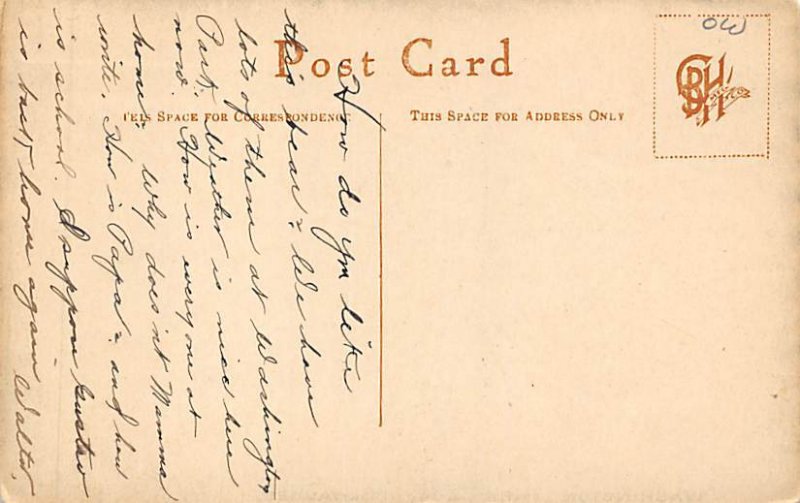 OW
Post Card
THIS SPACE FOR CORRESPONDENCE
THIS SPACE FOR ADDRESS ONLY
How do you like
this bear? We have
lots of them at Washington
Park. Weather is nice here
now. How is everyone at
home? Why does'nt Mamma
write. How is Papa? and how
is school. I suppose Gustav
is back home again Walter.